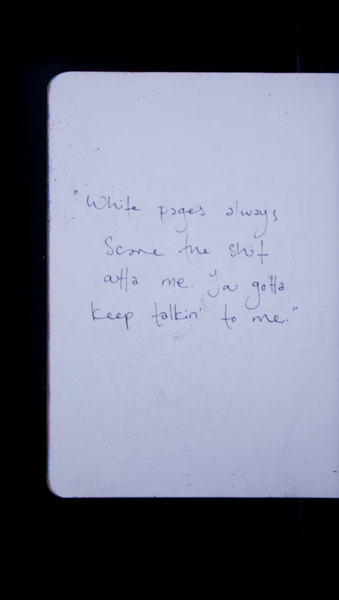 "White pages always
Scare the shit
atta me. You gotta
keep talkin' to me."